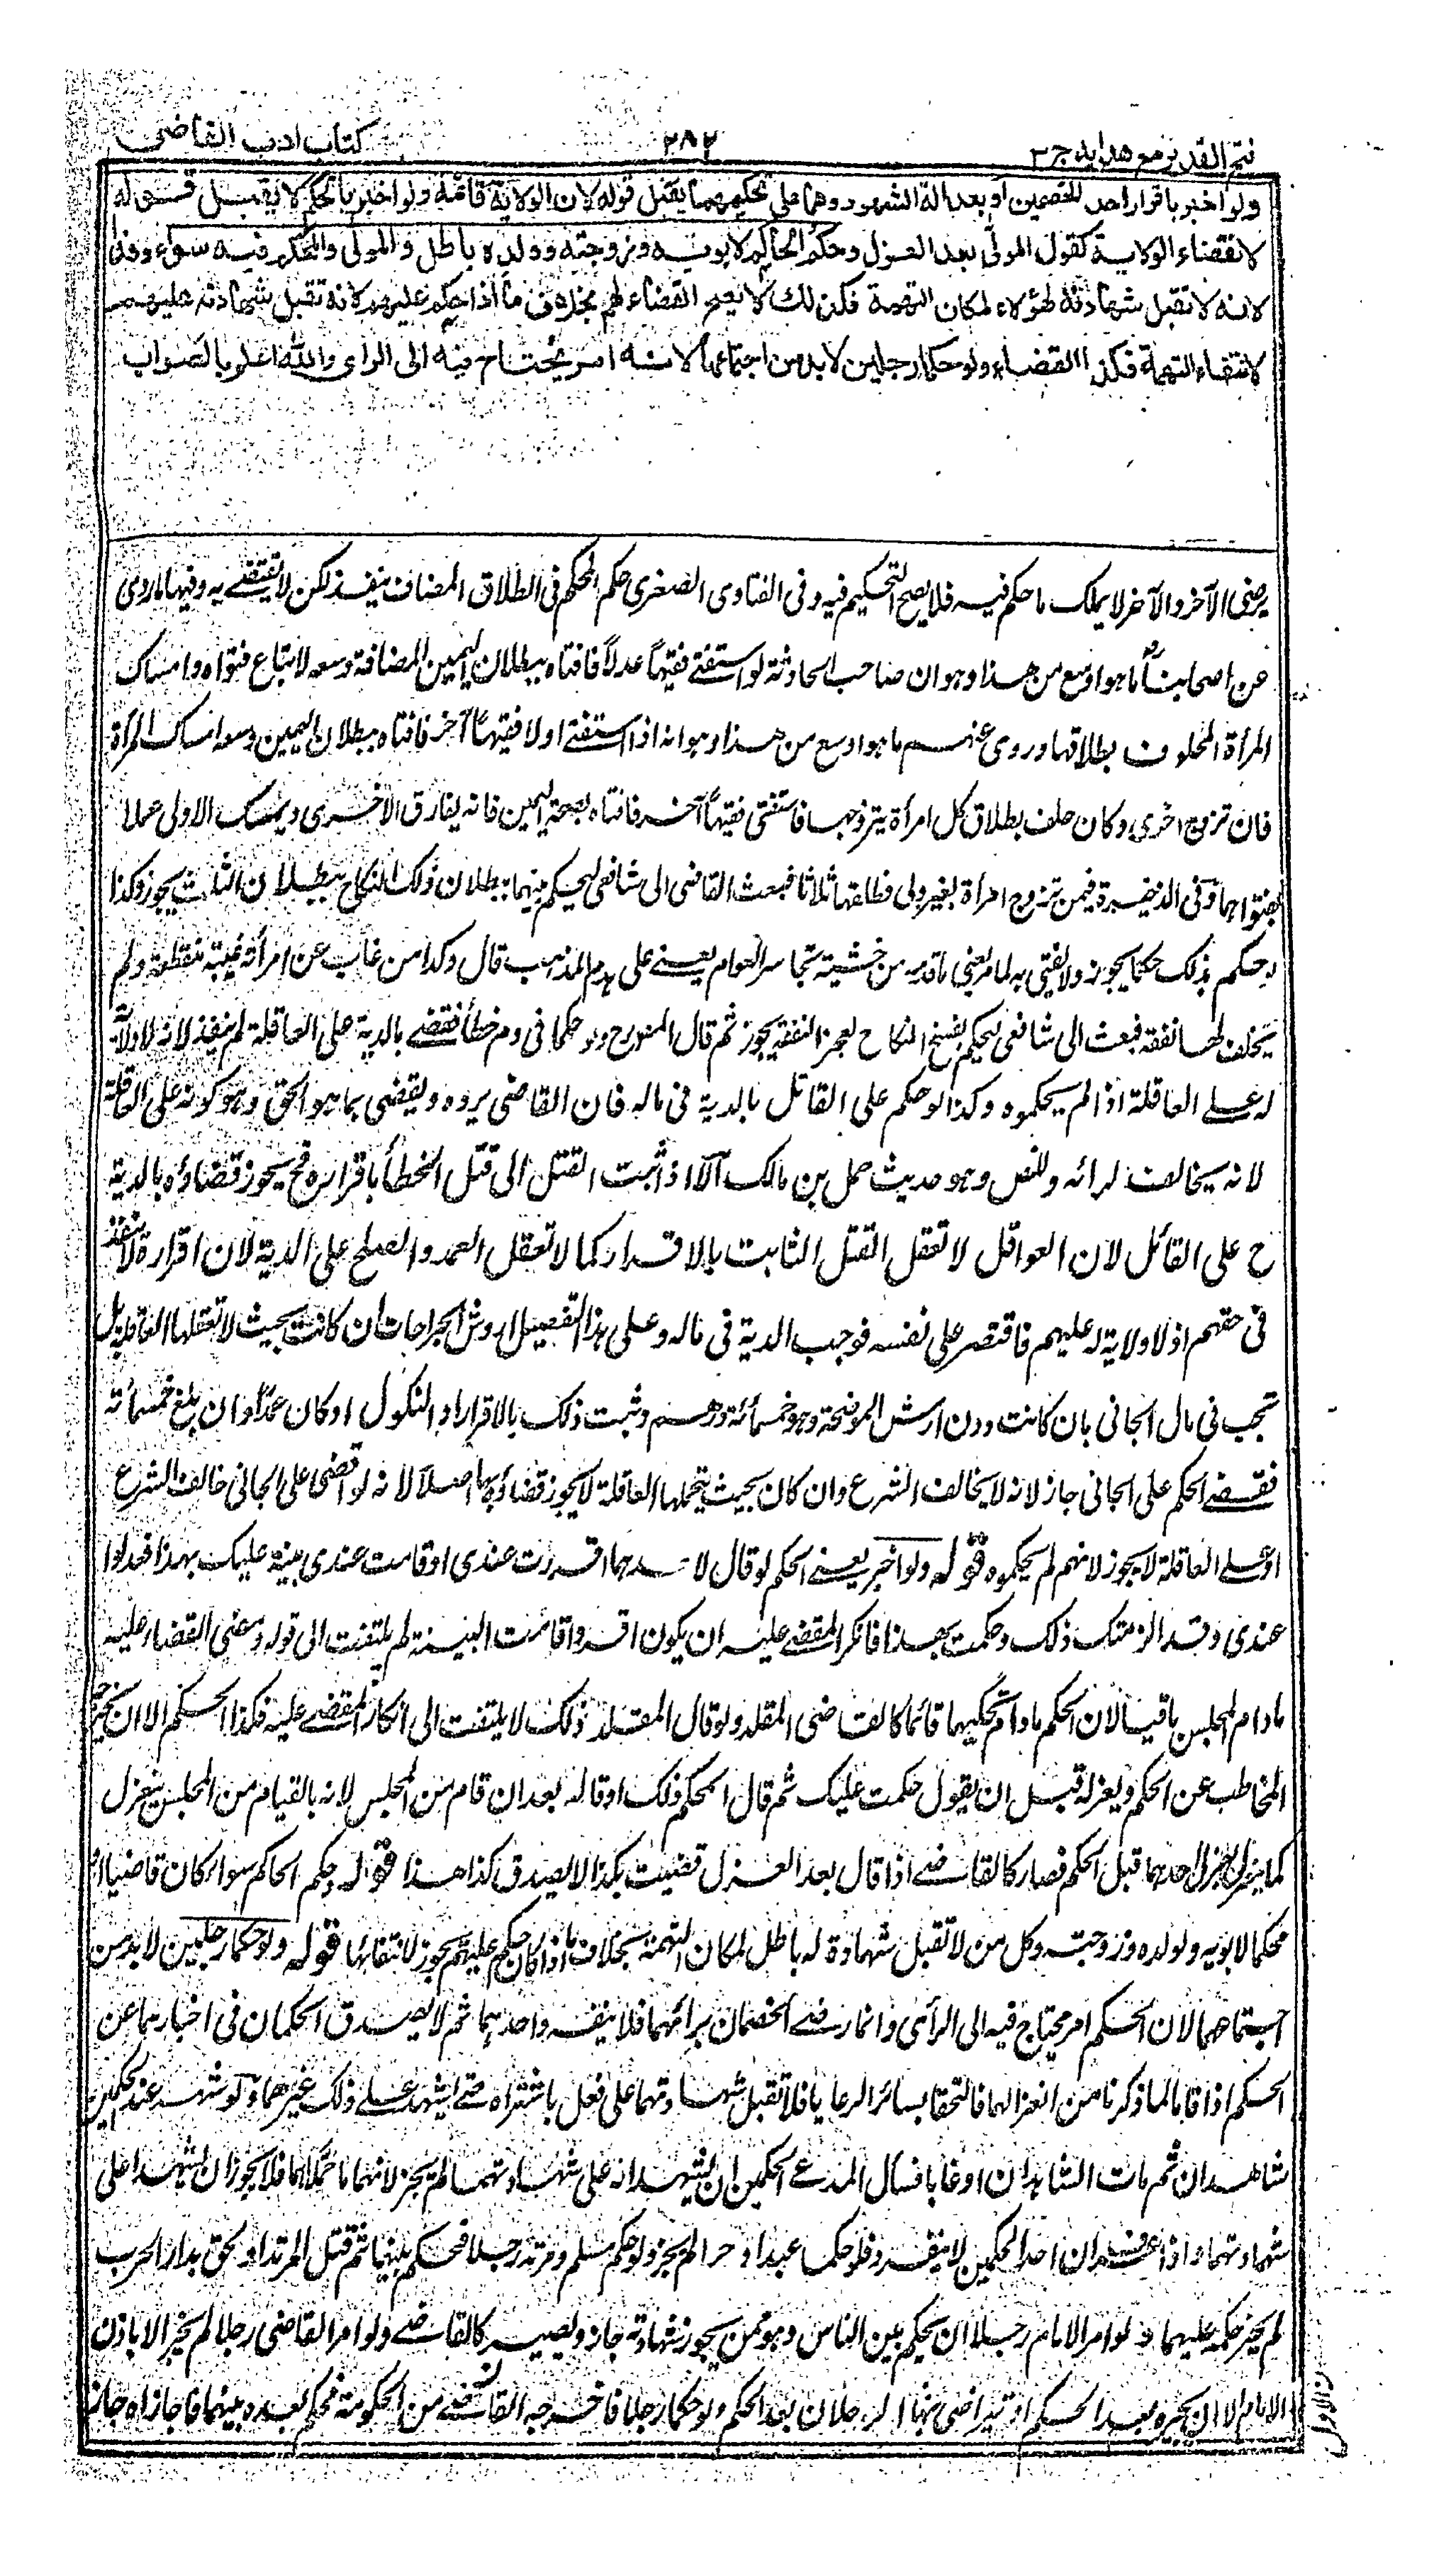 فتح القدیر مع هدایه ج ۳
۲۸۲
کتاب ادب القاضی
ولو اخبر باقرار احد الخصمین او بعدالة الشهود وهما علی تحکیمهما یقبل قوله لان الولایة قائمة ولو اخبر بالحکم لا یقبل قوله
لانقضاء الولایة کقول المولی بعد العزل وحکم الحاکم لابویه وزوجته وولده باطل والمولی والمحکم فیه سواء وهذا
لانه لا تقبل شهادته لهؤلاء لمکان التهمة فکذلک لا یصح القضاء لهم بخلاف ما اذا حکم علیهم لانه تقبل شهادته علیهم
لانتفاء التهمة فکذا القضاء ولو حکما رجلین لا بد من اجتماعهما لانه امر یحتاج فیه الی الرای والله اعلم بالصواب
یرضی الآخر والآخر لا یملک ما حکم فیه فلا یصح التحکیم فیه وفی الفتاوی الصغری حکم المحکم فی الطلاق المضاف ینفذ لکن لا یفتی به وفیها ما روی
عن اصحابنا ما هو اوسع من هذا وهو ان صاحب الحادثة لو استفتی فقیها عدلا فافتاه ببطلان الیمین المضافة وسعه لاتباع فتواه وامساک
المرأة المحلوف بطلاقها وروی عنهم ما هو اوسع من هذا وهو انه اذا استفتی اولا فقیها آخر فافتاه ببطلان الیمین وسعه امساک المرأة
فان تزوج اخری وکان حلف بطلاق کل امرأة یتزوجها فاستفتی فقیها آخر فافتاه بصحة الیمین فانه یفارق الاخری ویمسک الاولی عملا
بفتواهما وفی الذخیرة فیمن تزوج امرأة بغیر ولی فطلقها ثلاثا فبعث القاضی الی شافعی لیحکم بینهما ببطلان ذلک النکاح ببطلان الثلث یجوز وکذا
لو حکم بذلک حکما یجوز ولا یفتی به لما مر یعنی ما قدمه من خشیة تجاسر العوام یعنی علی هدم المذهب قال وکذا من غاب عن امرأته غیبة منقطعة ولم
یخلف لها نفقة فبعث الی شافعی لیحکم بفسخ النکاح لعجز النفقة یجوز ثم قال المشروح ولو حکما فی دم خطأ فقضی بالدیة علی العاقلة لم ینفذ لانه لا ولایة
له علی العاقلة اذ لم یحکموه وکذا لو حکم علی القاتل بالدیة فی ماله فان القاضی یرده ویقضی بما هو الحق وهو کونه علی العاقلة
لانه یخالف لرائه وللنص وهو حدیث حمل بن مالک الا اذا ثبت القتل ای قتل الخطأ باقراره فح یجوز قضاؤه بالدیة
ح علی القاتل لان العواقل لا تعقل القتل الثابت بالاقرار کما لا تعقل العمد والصلح علی الدیة لان اقراره لا ینفذ
فی حقهم اذ لا ولایة له علیهم فاقتصر علی نفسه فوجب الدیة فی ماله وعلی هذا التفصیل اروش الجراحات ان کانت بحیث لا تعقلها العاقلة بل
تجب فی مال الجانی بان کانت دون ارش الموضحة وهو خمسمائة درهم وثبت ذلک بالاقرار او النکول او کان عمدا وان بلغ خمسمائة
فقضی الحکم علی الجانی جاز لانه لا یخالف الشرع وان کان بحیث یتحملها العاقلة لا یجوز قضاؤه بها اصلا لانه لو قضی علی الجانی خالف الشرع
او علی العاقلة لا یجوز لانهم لم یحکموه قوله ولو اخبر یعنی الحکم لو قال لاحدهما اقررت عندی او قامت عندی بینة علیک بهذا فعدلوا
عندی وقد الزمتک ذلک وحکمت بهذا فانکر المقضی علیه ان یکون اقر او قامت البینة لم یلتفت الی قوله ومعنی القضاء علیه
ما دام المجلس باقیا لان الحکم ما دام تحکیمهما قائما کالقاضی المقلد ولو قال المقلد ذلک لا یلتفت الی انکار المقضی علیه فکذا الحکم الا ان یخرجه
المخاطب عن الحکم ویعزله قبل ان یقول حکمت علیک ثم قال الحکم ذلک او قاله بعد ان قام من المجلس لانه بالقیام من المجلس ینعزل
کما ینعزل بعزل احدهما قبل الحکم فصار کالقاضی اذا قال بعد العزل قضیت بکذا لا یصدق کذا هذا قوله وحکم الحاکم سواء کان قاضیا او
محکما لابویه ولولده وزوجته وکل من لا تقبل شهادة له باطل لمکان التهمة بخلاف ما اذا کان حکم علیهم یجوز لانتفائها قوله ولو حکما رجلین لا بد من
اجتماعهما لان الحکم امر محتاج فیه الی الرأی وانما رضی الخصمان برائهما فلا ینفرد احدهما ثم لا یصدق الحکمان فی اخبارهما عن
الحکم اذا قاما لما ذکرنا من انعزالهما فالتحقا بسائر الرعایا فلا تقبل شهادتهما علی فعل باشراه حتی یشهد علی ذلک غیرهما ولو شهد عند الحکمین
شاهدان ثم مات الشاهدان او غابا فسأل المدعی الحکمین ان یشهدا له علی شهادتهما لم یجز لانهما ما حملاهما فلا یجوز ان یشهدا علی
شهادتهما واذا عرف ان احد الحکمین لا ینفرد فلو حکما عبدا وحرا لم یجز ولو حکم مسلم ومرتد رجلا فحکم بینهما ثم قتل المرتد او لحق بدار الحرب
لم یجز حکمه علیهما ولو امر الامام رجلا ان یحکم بین الناس وهو ممن یجوز شهادته جاز ویصیر کالقاضی ولو امر القاضی رجلا لم یجز الا باذن
الامام الا ان یجیزه بعد الحکم او تراضی منهما الرجلان بعد الحکم ولو حکما رجلا فاخرجه القاضی من الحکومة فحکم بعده بینهما فاجازاه جاز